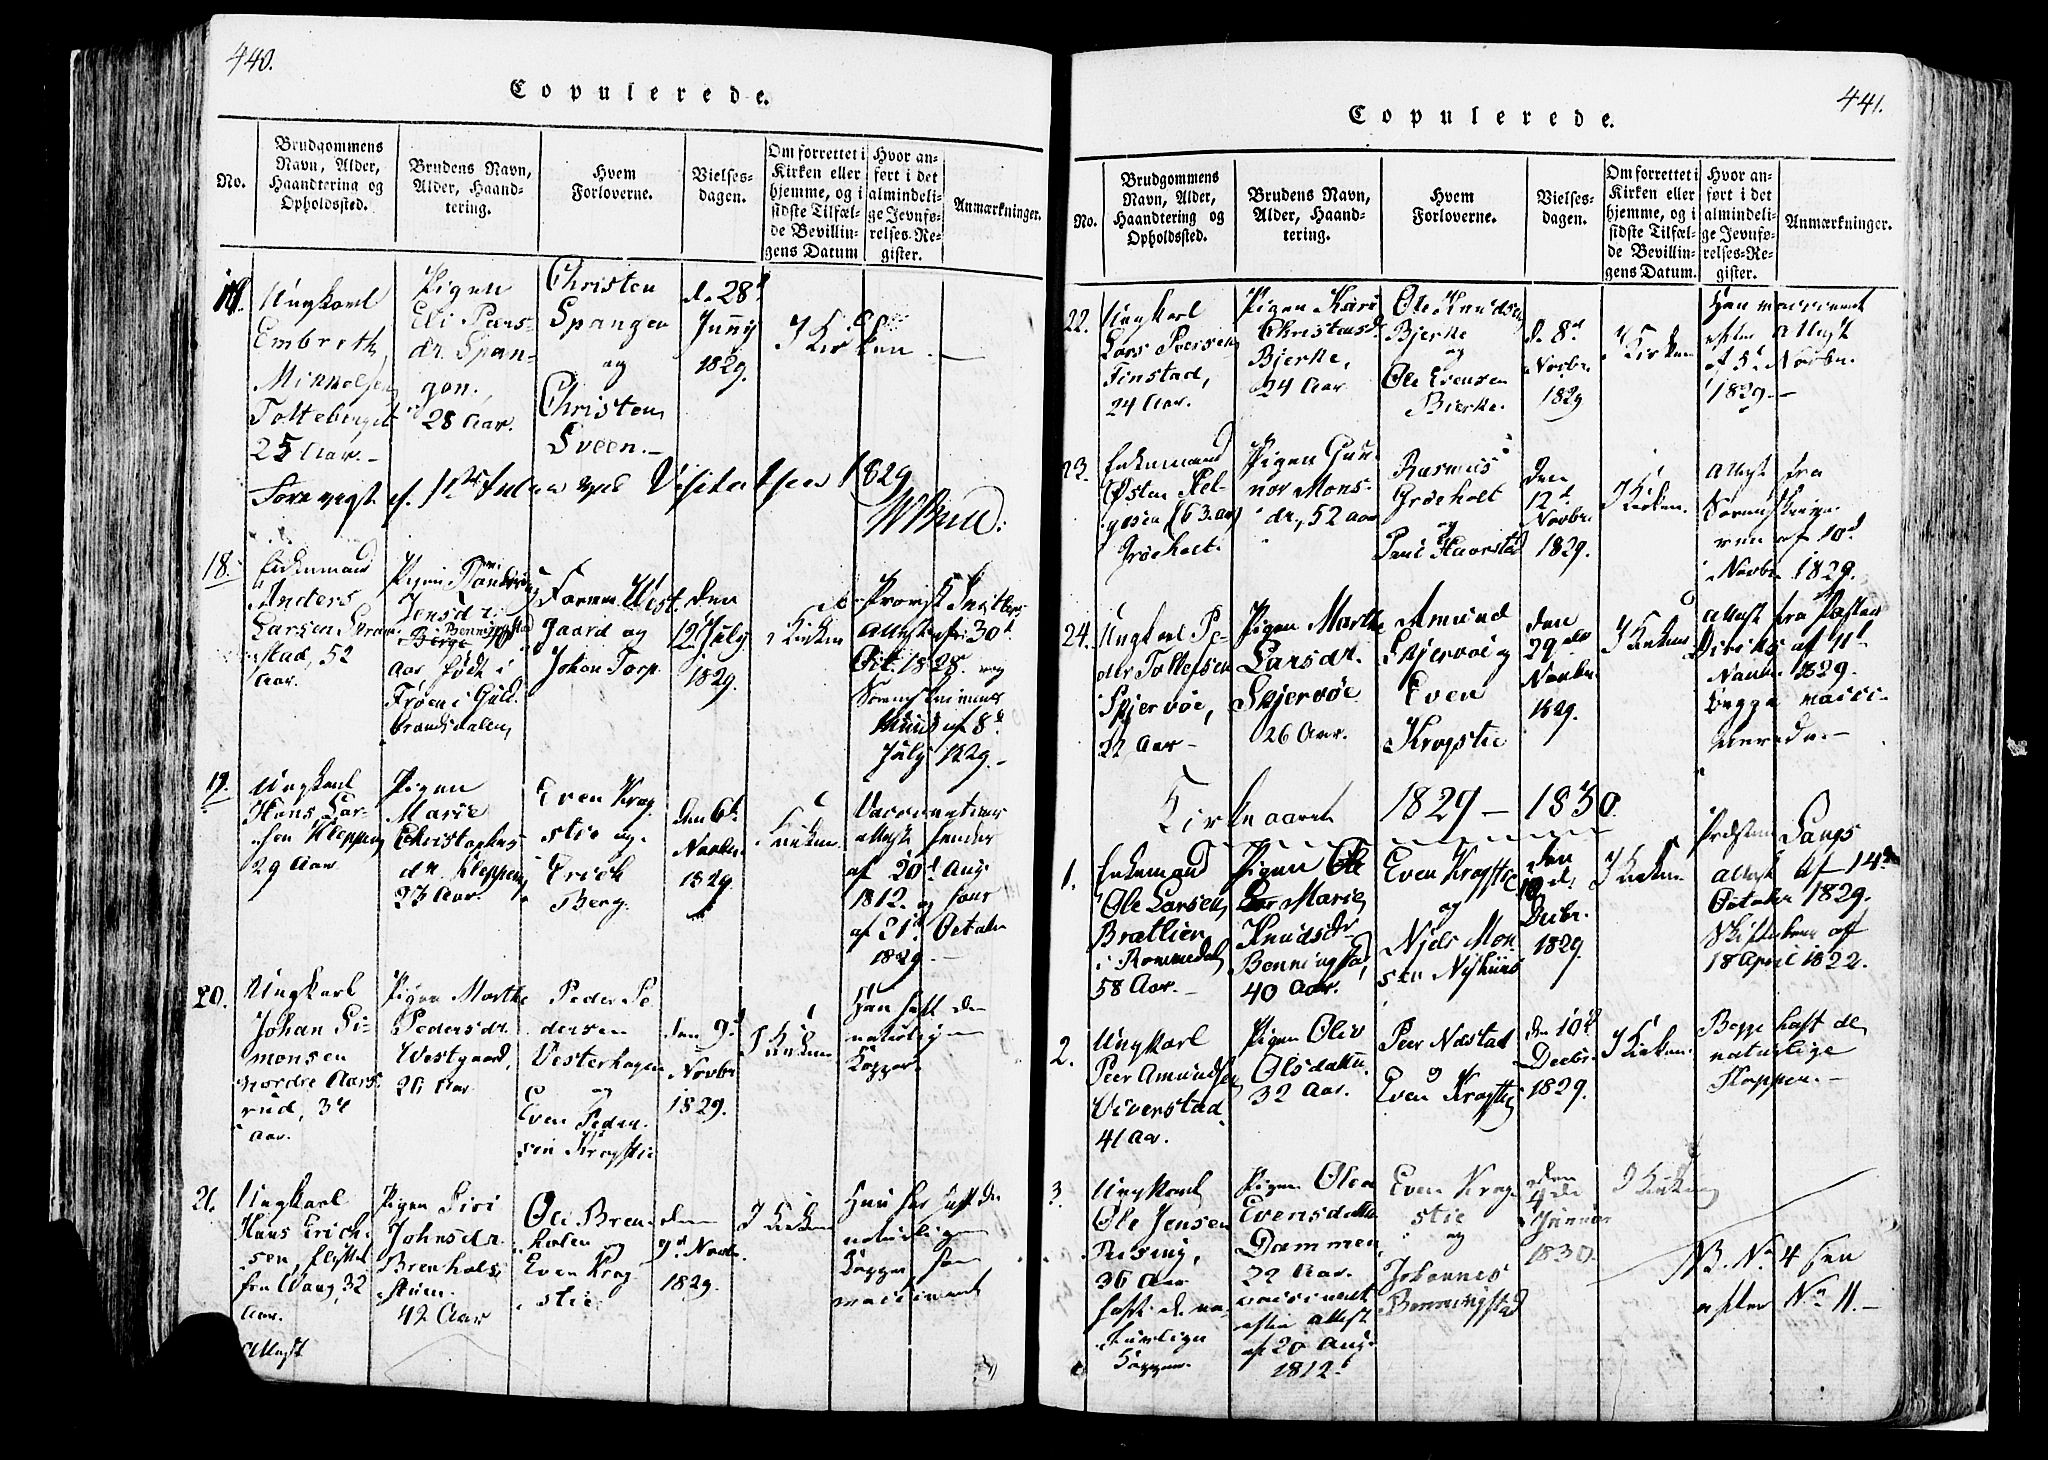 440.
Copulerede.
No.
Brudgommens
Navn, Alder,
Haandtering og
Opholdssted.
Brudens Navn,
Alder, Haand-
tering.
Hvem
Forloverne.
Vielses-
dagen.
Om forrettet i
Kirken eller
hjemme, og i
sidste Tilfæl-
de Bevillin-
gens Datum
Hvor an-
ført i det
almindeli-
ge Jevnfø-
relses-Re-
gister.
Anmærkninger.
Ungkarl
Embreth
Mikkelsen
Tolteberget
25 Aar.
Pigen
Eli Pers-
dr. Span-
gen,
28 Aar.
Christen
Spangen
og
Christen
Sveen.
d. 28d
Junij
1829.
I Kirken.
Visitatsen 1829
18.
Enkemand
Anders
Larsen
stad, 52
Aar.
Pigen
Jensdr.
Benningstad
Aar, født i
Froen i Guld-
brandsdalen,
Farmen West-
gaard og
Johan Torp.
Den
12t July
1829.
I Kirken
Provst
Attest af 30t
Oct. 1828 og
Sorenskriverens
af 8d
July 1829.
19.
Ungkarl
Hans Lar-
sen Kleppen,
29 Aar
Pigen
Marie
Christophers
dr. Kleppen,
23 Aar.
Even Krog-
stie og
Erich
Berg.
den 6t
Novbr.
1829.
I Kirken.
Vaccinations
attest hendes
af 20d Aug.
1812. og hans
af 21d October
1829.
20.
Ungkarl
Johan Si-
monsen
nordre Aars-
rud, 34
Aar.
Pigen Marthe
Pedersdr.
Westgaard,
26 Aar
Peder Pe-
dersen
Vesterhagen
og
Even Peder-
sen Krogstie
den 9d
Novbr
1829.
I Kirken
Han haft de
naturlige
Kopper.
21.
Ungkarl
Hans Erich-
sen,
fra Vang, 32
Aar.
Attest
Pigen Siri
Johnsdr.
Brenhols-
42 Aar
Ole Bren-
holen og
Even Krog-
stie
den
9d Novbr.
1829.
I Kirken
Hun har haft de
naturlige
Kopper han
vaccineret
441.
Copulerede.
No.
Brudgommens
Navn, Alder,
Haandtering og
Opholdssted.
Brudens Navn,
Alder, Haand-
tering.
Hvem
Forloverne.
Vielses-
dagen.
Om forrettet i
Kirken eller
hjemme, og i
sidste Tilfæl-
de Bevillin-
gens Datum.
Hvor an-
ført i det
almindeli-
ge Jevnfø-
relses-Re-
gister.
Anmærkninger.
22.
Ungkarl
Lars Peersen
Finstad,
24 Aar.
Pigen Kari
Christensd.
Bjerke,
24 Aar
Ole Knudsen
Bjerke
og
Ole Evensen
Bierke.
d. 8d
Novbr.
1829
I Kirken
Han vaccineret
efter Attest
af 5t Novbr.
1829.
23.
Enkemand
Østen Hel-
gesen (63 aar)
Grøeholt.
Pigen Gun-
nor Mons-
dr., 52 aar
Rasmus
Grøeholt
og
Poul Haverstad
Den
12t
Novbr.
1829.
I Kirken.
Attest fra
Sorenskrive-
ren af 10d
Novbr. 1829.
24.
Ungkarl Pe-
der Tollefsen
Skjervøe,
22 Aar
Pigen Marthe
Larsdr.
Skjervøe
26 Aar.
Amund
Skjervøe og
Even
Krogstie
Den
29de
Novbr.
1829.
I Kirken.
Attest fra Pastor
Diriks af 11t
Novbr. 1829.
begge vacci-
nerede.
Kirkeaaret 1829 - 1830.
1.
Enkemand
Ole Larsen
Brætlien
i Rommedal,
58 Aar.
Pigen
Marie
Knudsdr
Benningstad,
40 Aar.
Even Krogstie
og
Niels Mon-
sen Nyhuus
Den
Decbr.
1829.
I Kirken
Præsten Langs
Attest af 14de
October 1829.
Skiftebrev af
18 April 1822.
2.
Ungkarl
Peer Amundsen
Viverstad
41 Aar.
Pigen Oliv
Olsdatter
32 Aar.
Peer Næstad
og
Even Krogstie
den 10d
Decbr.
1829.
I Kirken.
Begge haft de
naturlige
Kopper.
3.
Ungkarl
Ole Jensen
Rusing,
36 Aar
haft de na-
turlige
Kopper.
Pigen Olea
Evensdatter
Dammen,
22 Aar.
vaccineret
efter Attest
af 20 Aug.
1812.
Even Krog-
stie
og
Johannes
Benningstad
Den
4de
Januar
1830.
I Kirken
NB. No 4 sen
efter No 11.